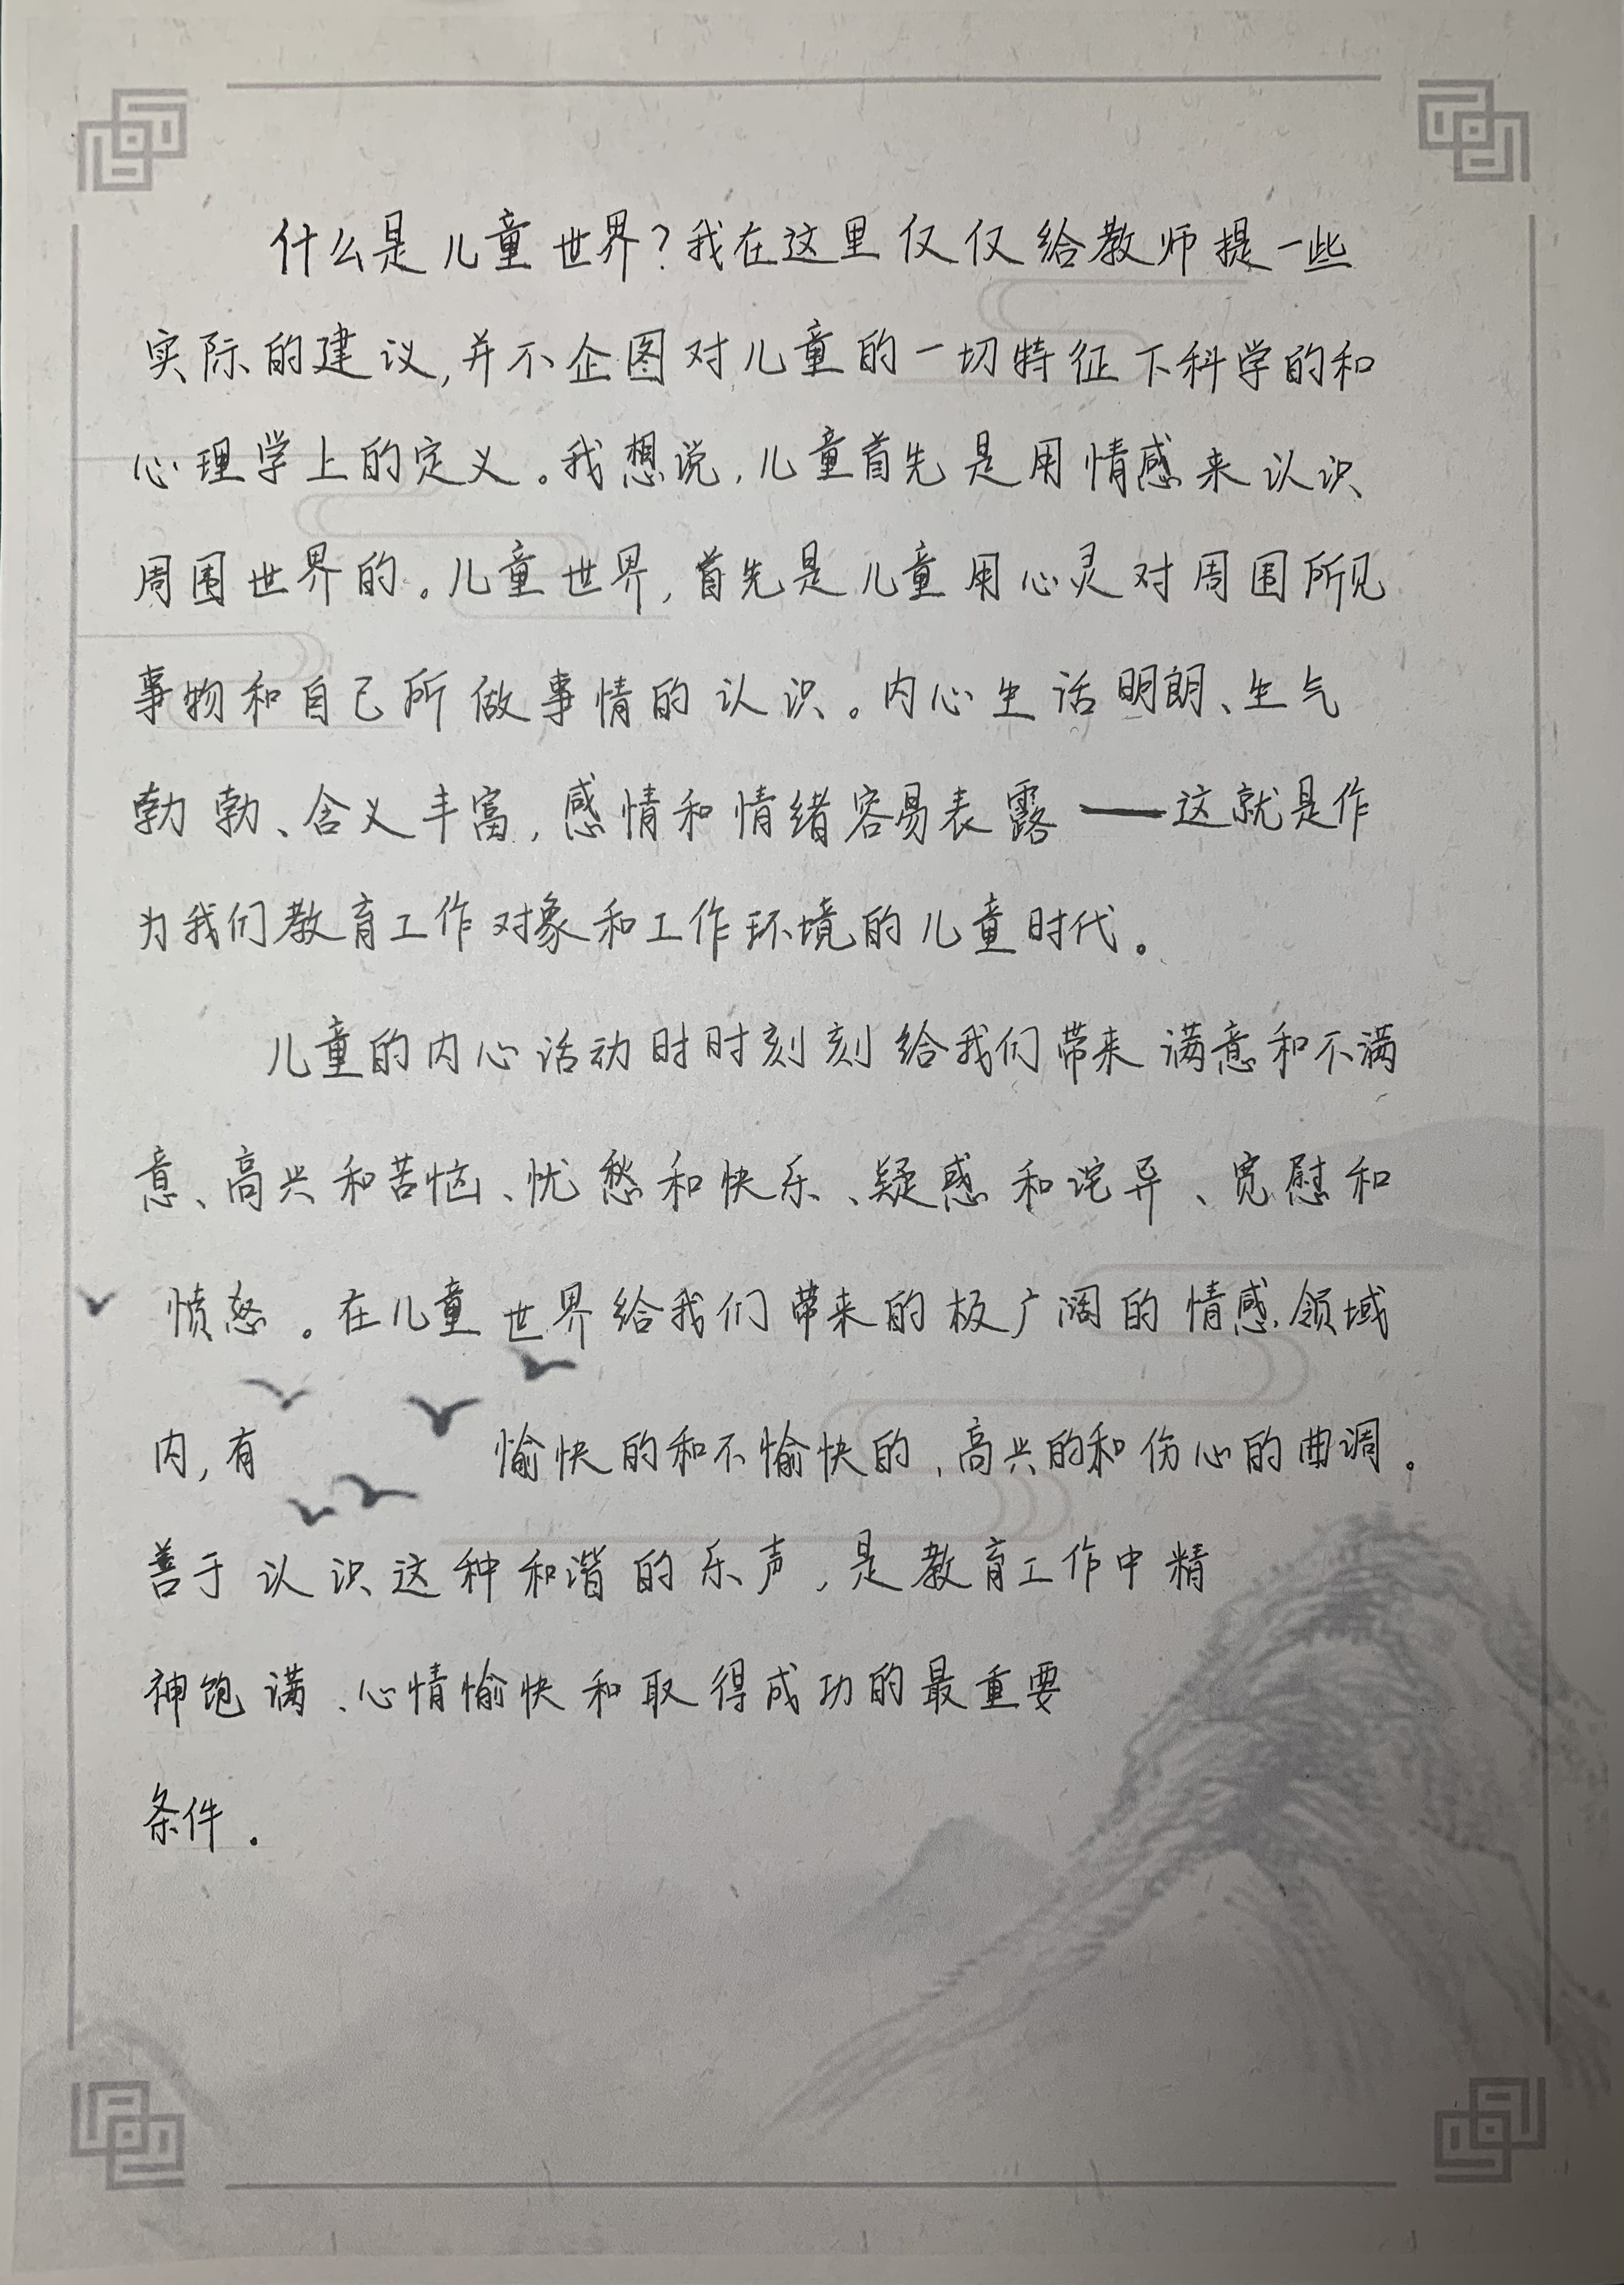 什么是儿童世界?我在这里仅仅给教师提一些
实际的建议,并不企图对儿童的一切特征下科学的和
心理学上的定义。我想说,儿童首先是用情感来认识
周围世界的。儿童世界,首先是儿童用心灵对周围所见
事物和自己所做事情的认识。内心生活明朗、生气
勃勃、含义丰富,感情和情绪容易表露——这就是作
为我们教育工作对象和工作环境的儿童时代。
儿童的内心活动时时刻刻给我们带来满意和不满
意、高兴和苦恼、忧愁和快乐、疑惑和诧异、宽慰和
愤怒。在儿童世界给我们带来的极广阔的情感领域
内,有愉快的和不愉快的、高兴的和伤心的曲调。
善于认识这种和谐的乐声,是教育工作中精
神饱满、心情愉快和取得成功的最重要
条件。